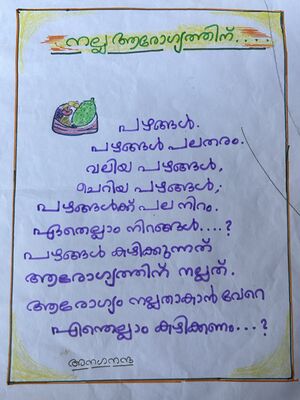 നല്ല ആരോഗ്യത്തിന്....
പഴങ്ങൾ.
പഴങ്ങൾ പലതരം.
വലിയ പഴങ്ങൾ,
ചെറിയ പഴങ്ങൾ,
പഴങ്ങൾക്ക് പല നിറം.
ഏതെല്ലാം നിറങ്ങൾ....?
പഴങ്ങൾ കഴിക്കുന്നത്
ആരോഗ്യത്തിന് നല്ലത്.
ആരോഗ്യം നല്ലതാകാൻ വേറെ
എന്തെല്ലാം കഴിക്കണം...?
അനഗനന്ദ